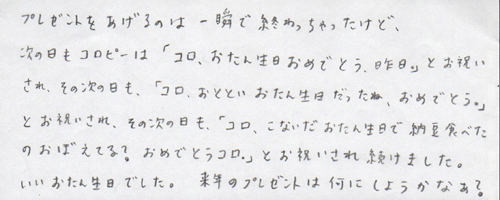 プレゼントをあげるのは一瞬で終わっちゃったけど、
次の日もコロピーは「コロ、おたん生日おめでとう、昨日。」とお祝い
され、その次の日も、「コロ、おとといおたん生日だったね、おめでとう。」
とお祝いされ、その次の日も、「コロ、こないだおたん生日で納豆食べた
のおぼえてる？おめでとうコロ。」とお祝いされ続けました。
いいおたん生日でした。 来年のプレゼントは何にしようかなぁ？